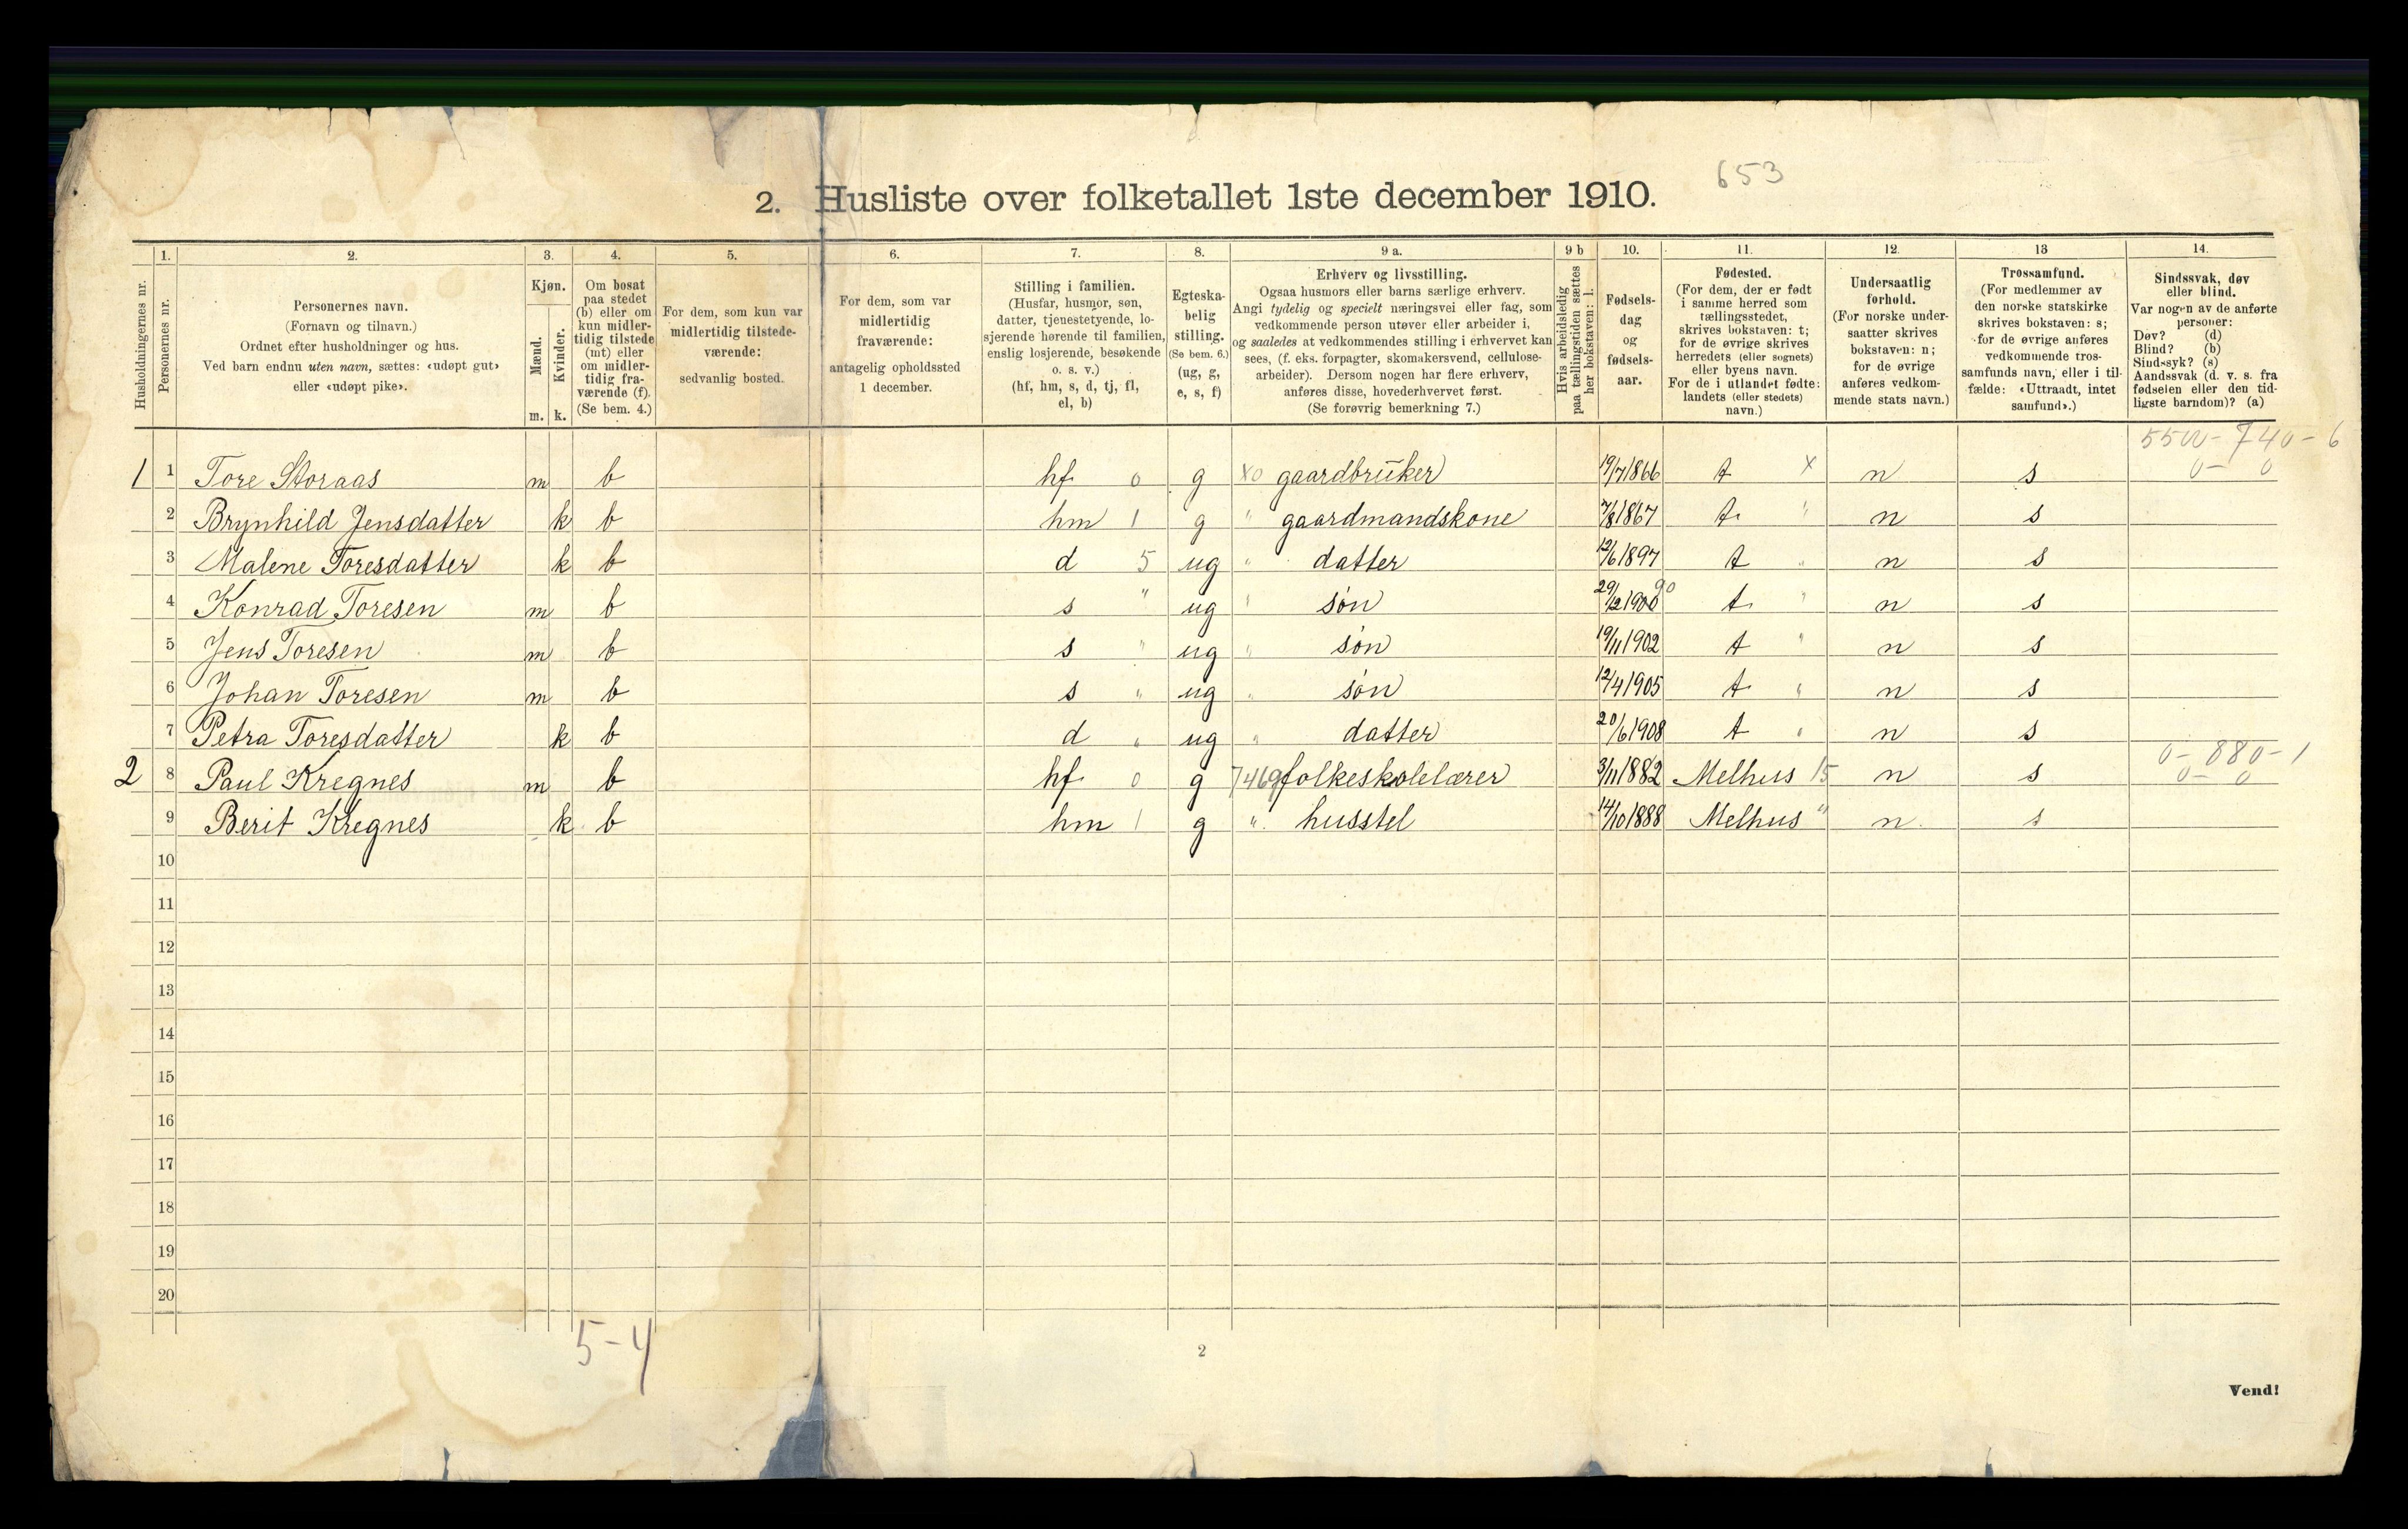 653
2. Husliste over folketallet 1ste december 1910.
1. 2. 3. 4. 5. 6. 7. 8. 9 a. 9 b 10. 11. 12. 13 14.
Husholdningernes nr.
Personernes nr.
Personernes navn.
(Fornavn og tilnavn.)
Ordnet efter husholdninger og hus.
Ved barn endnu uten navn, sættes: «udøpt gut»
eller «udøpt pike».
Kjøn.
Mænd.
Kvinder.
m. k.
Om bosat
paa stedet
(b) eller om
kun midler-
tidig tilstede
(mt) eller
om midler-
tidig fra-
værende (f).
(Se bem. 4.)
For dem, som kun var
midlertidig tilstede-
værende:
sedvanlig bosted.
For dem, som var
midlertidig
fraværende:
antagelig opholdssted
1 december.
Stilling i familien.
(Husfar, husmor, søn,
datter, tjenestetyende, lo-
sjerende hørende til familien,
enslig losjerende, besøkende
o. s. v.)
(hf, hm, s, d, tj, fl,
el, b)
Egteska-
belig
stilling.
(Se bem. 6.)
(ug, g,
e, s, f)
Erhverv og livsstilling.
Ogsaa husmors eller barns særlige erhverv.
Angi tydelig og specielt næringsvei eller fag, som
vedkommende person utøver eller arbeider i,
og saaledes at vedkommendes stilling i erhvervet kan
sees, (f. eks. forpagter, skomakersvend, cellulose-
arbeider). Dersom nogen har flere erhverv,
anføres disse, hovederhvervet først.
(Se forøvrig bemerkning 7.)
Hvis arbeidsledig
paa tællingstiden sættes
her bokstaven: l.
Fødsels-
dag
og
fødsels-
aar.
Fødested.
(For dem, der er født
i samme herred som
tællingsstedet,
skrives bokstaven: t;
for de øvrige skrives
herredets (eller sognets)
eller byens navn.
For de i utlandet fødte:
landets (eller stedets)
navn.)
Undersaatlig
forhold.
(For norske under-
saatter skrives
bokstaven: n;
for de øvrige
anføres vedkom-
mende stats navn.)
Trossamfund.
(For medlemmer av
den norske statskirke
skrives bokstaven: s;
for de øvrige anføres
vedkommende tros-
samfunds navn, eller i til-
fælde: «Uttraadt, intet
samfund».)
Sindssvak, døv
eller blind.
Var nogen av de anførte
personer:
Døv? (d)
Blind? (b)
Sindssyk? (s)
Aandssvak (d. v. s. fra
fødselen eller den tid-
ligste barndom)? (a)
740-6
1 1 Tore Storaas m b hf 0 g x0 gaardbruker 19/7 1866 t x n s 0- 0
2 Brynhild Jensdatter k b hm 1 g " gaardmandskone 7/8 1867 t " n s
3 Malene Toresdatter k b d 5 ug " datter 12/6 1897 t " n s
4 Konrad Toresen m b s " ug " søn 29/12 1900 90 t " n s
5 Jens Toresen m b s " ug " søn 19/11 1902 t " n s
6 Johan Toresen m b s " ug " søn 12/4 1905 t " n s
7 Petra Toresdatter k b d " ug " datter 20/6 1908 t " n s
0-880-1
2 8 Paul Kregnes m b hf 0 g 7469 folkeskolelærer 3/11 1882 Melhus 15 n s 0- 0
9 Berit Kregnes k b hm 1 g " husstel 14/10 1888 Melhus " n s
10
11
12
13
14
15
16
17
18
19
20
5-4
2
Vend!